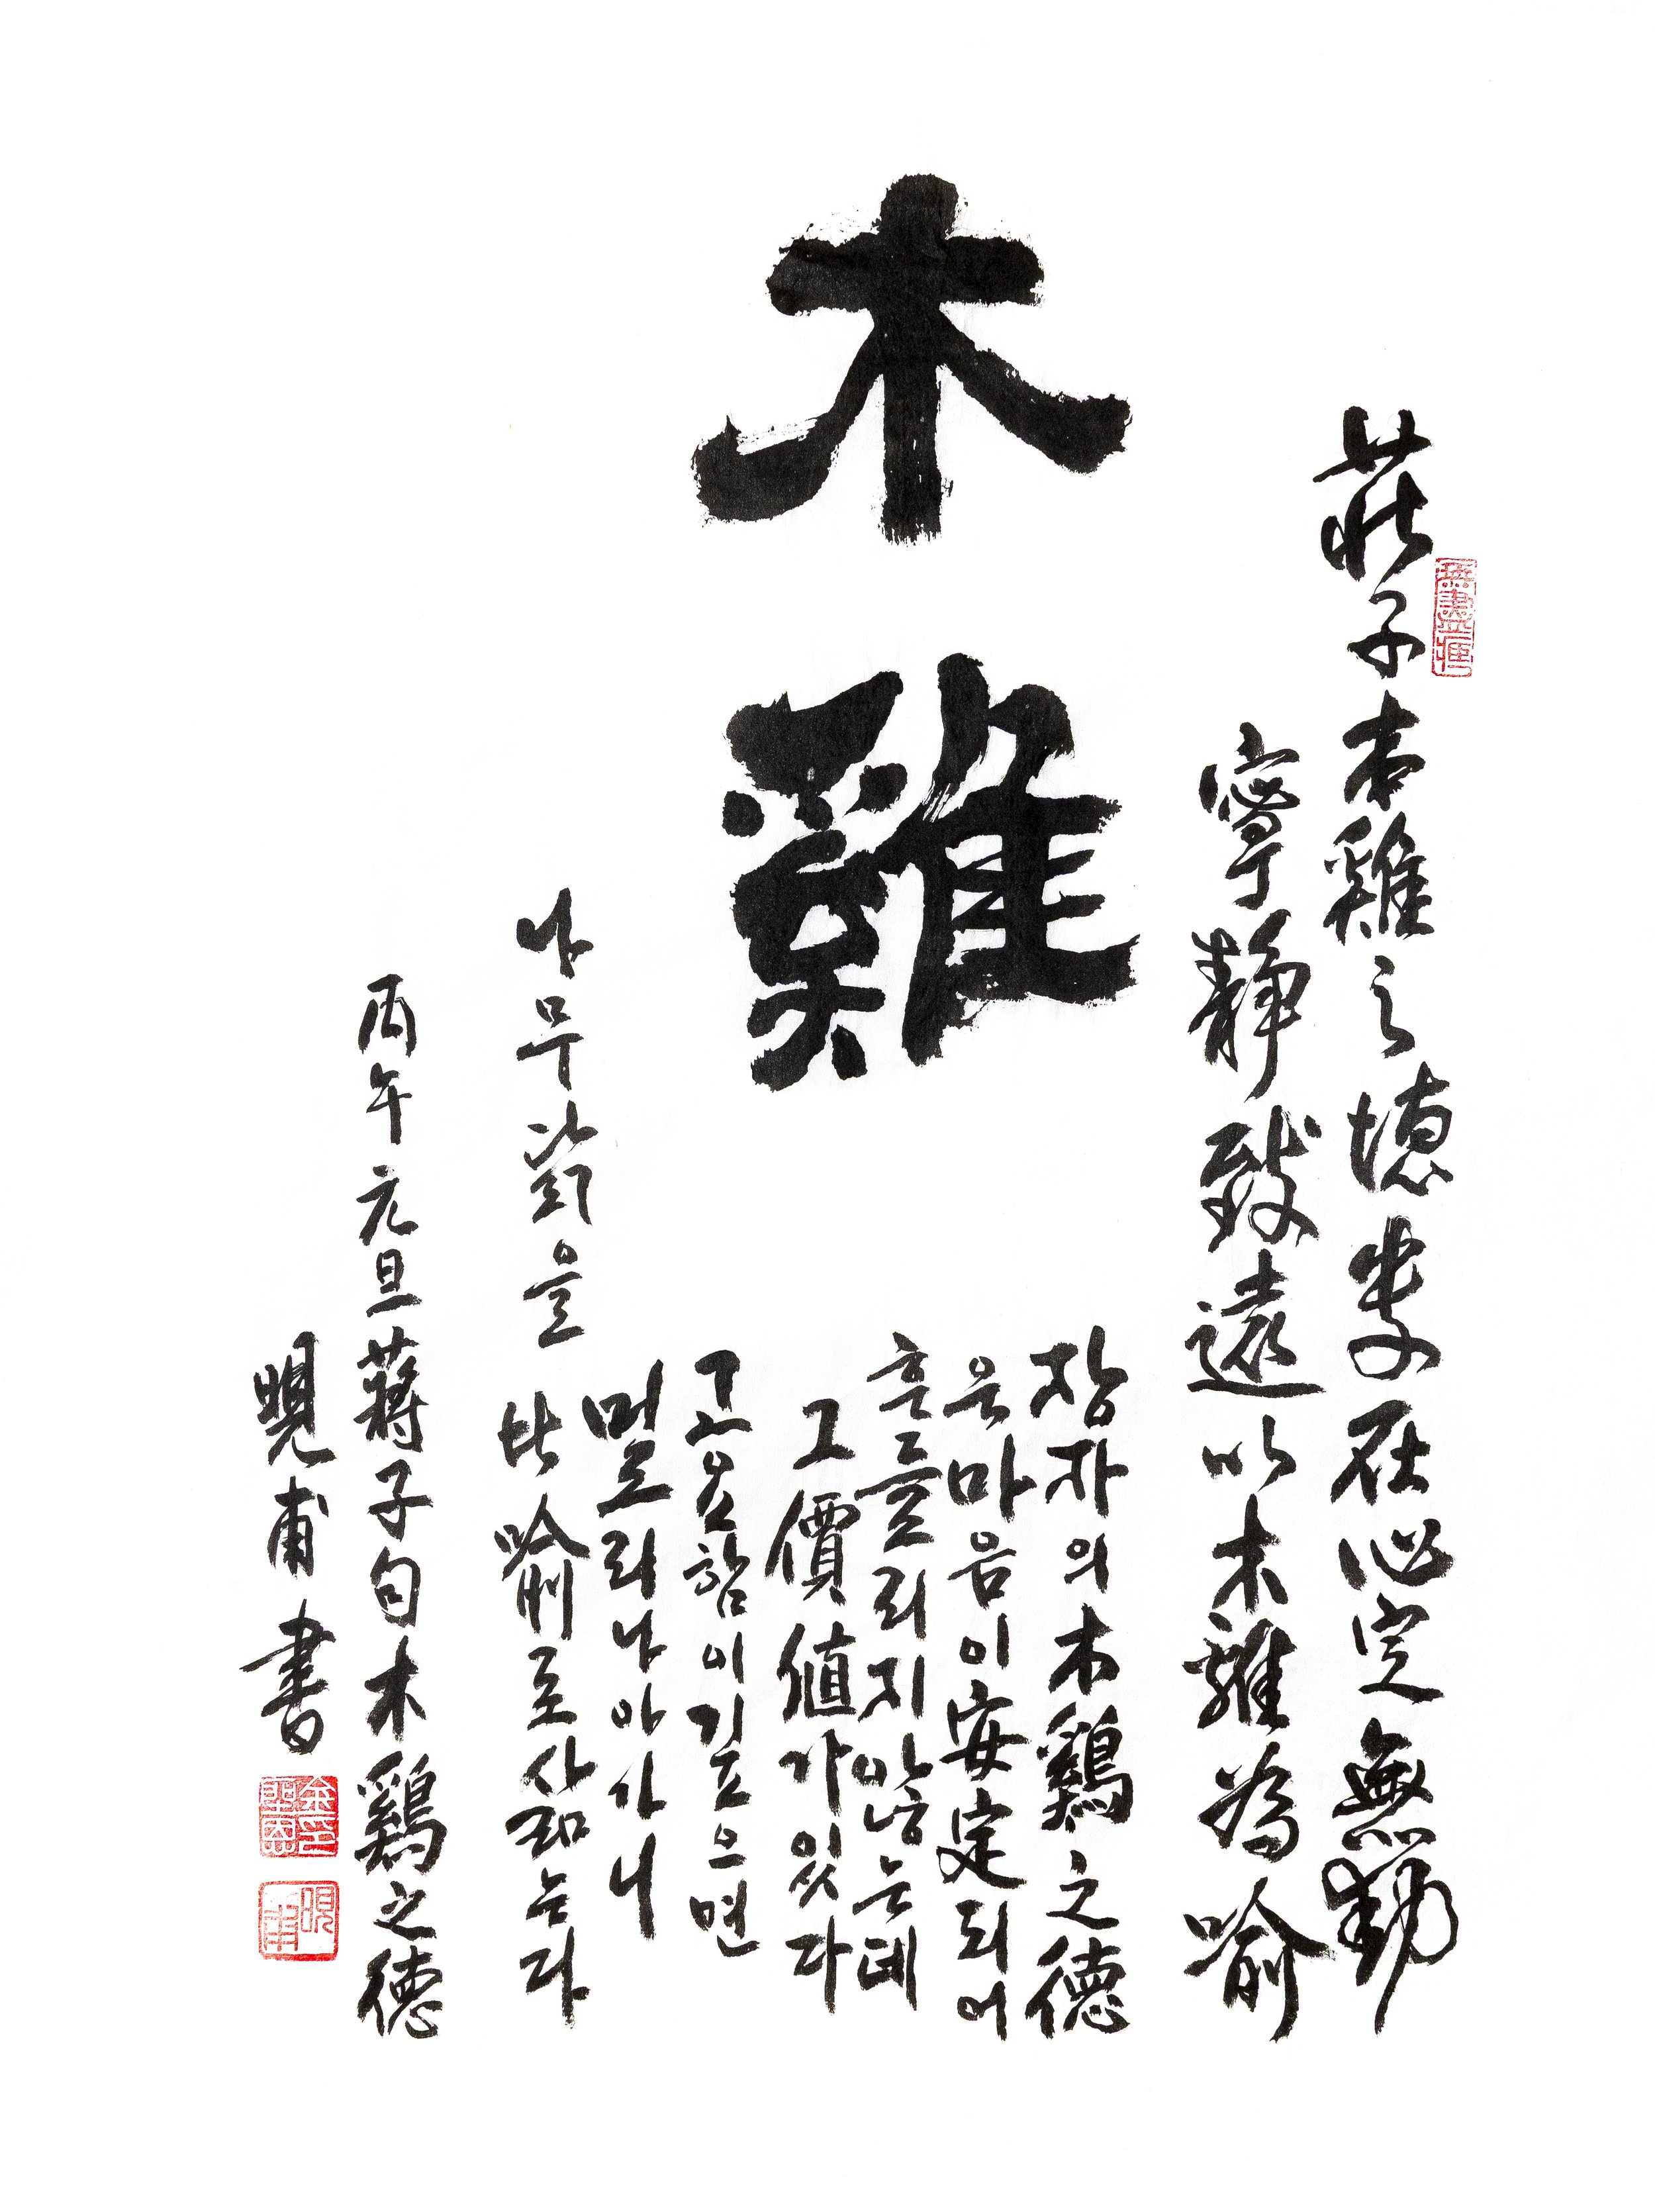 木
雞
莊子木雞之德貴在心定無動
寧靜致遠以木雞為喻
장자의 木鷄之德
은 마음이 安定되어
흔들리지 않는데
그 價値가 있다
고요함이 깊으면
멀로리나아가니
나무닭을 比喻로 삼는다
丙午元旦蔣子句木鷄之德
晛甫書